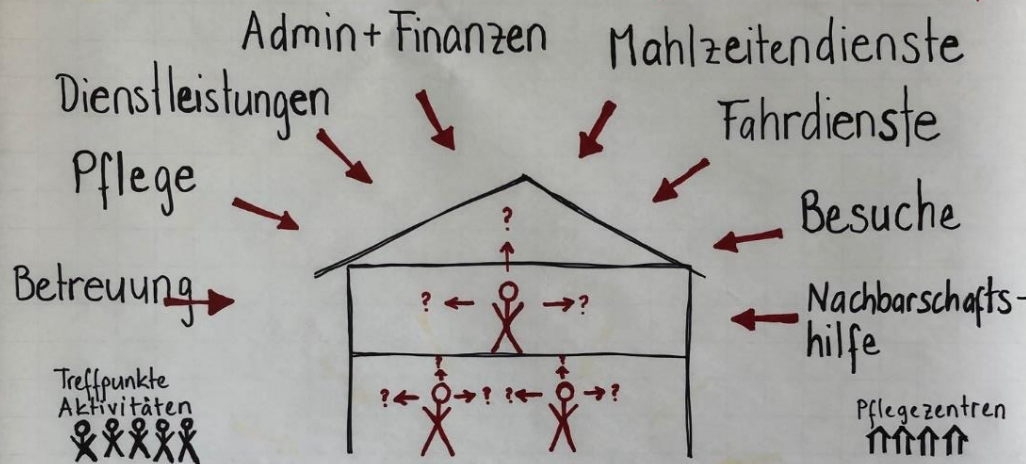 Admin + Finanzen
Mahlzeitendienste
Dienstleistungen
Fahrdienste
Pflege
Besuche
Betreuung
Nachbarschafts-
hilfe
Treffpunkte
Aktivitäten
Pflegezentren
?
? ?
? ?
? ? ? ?